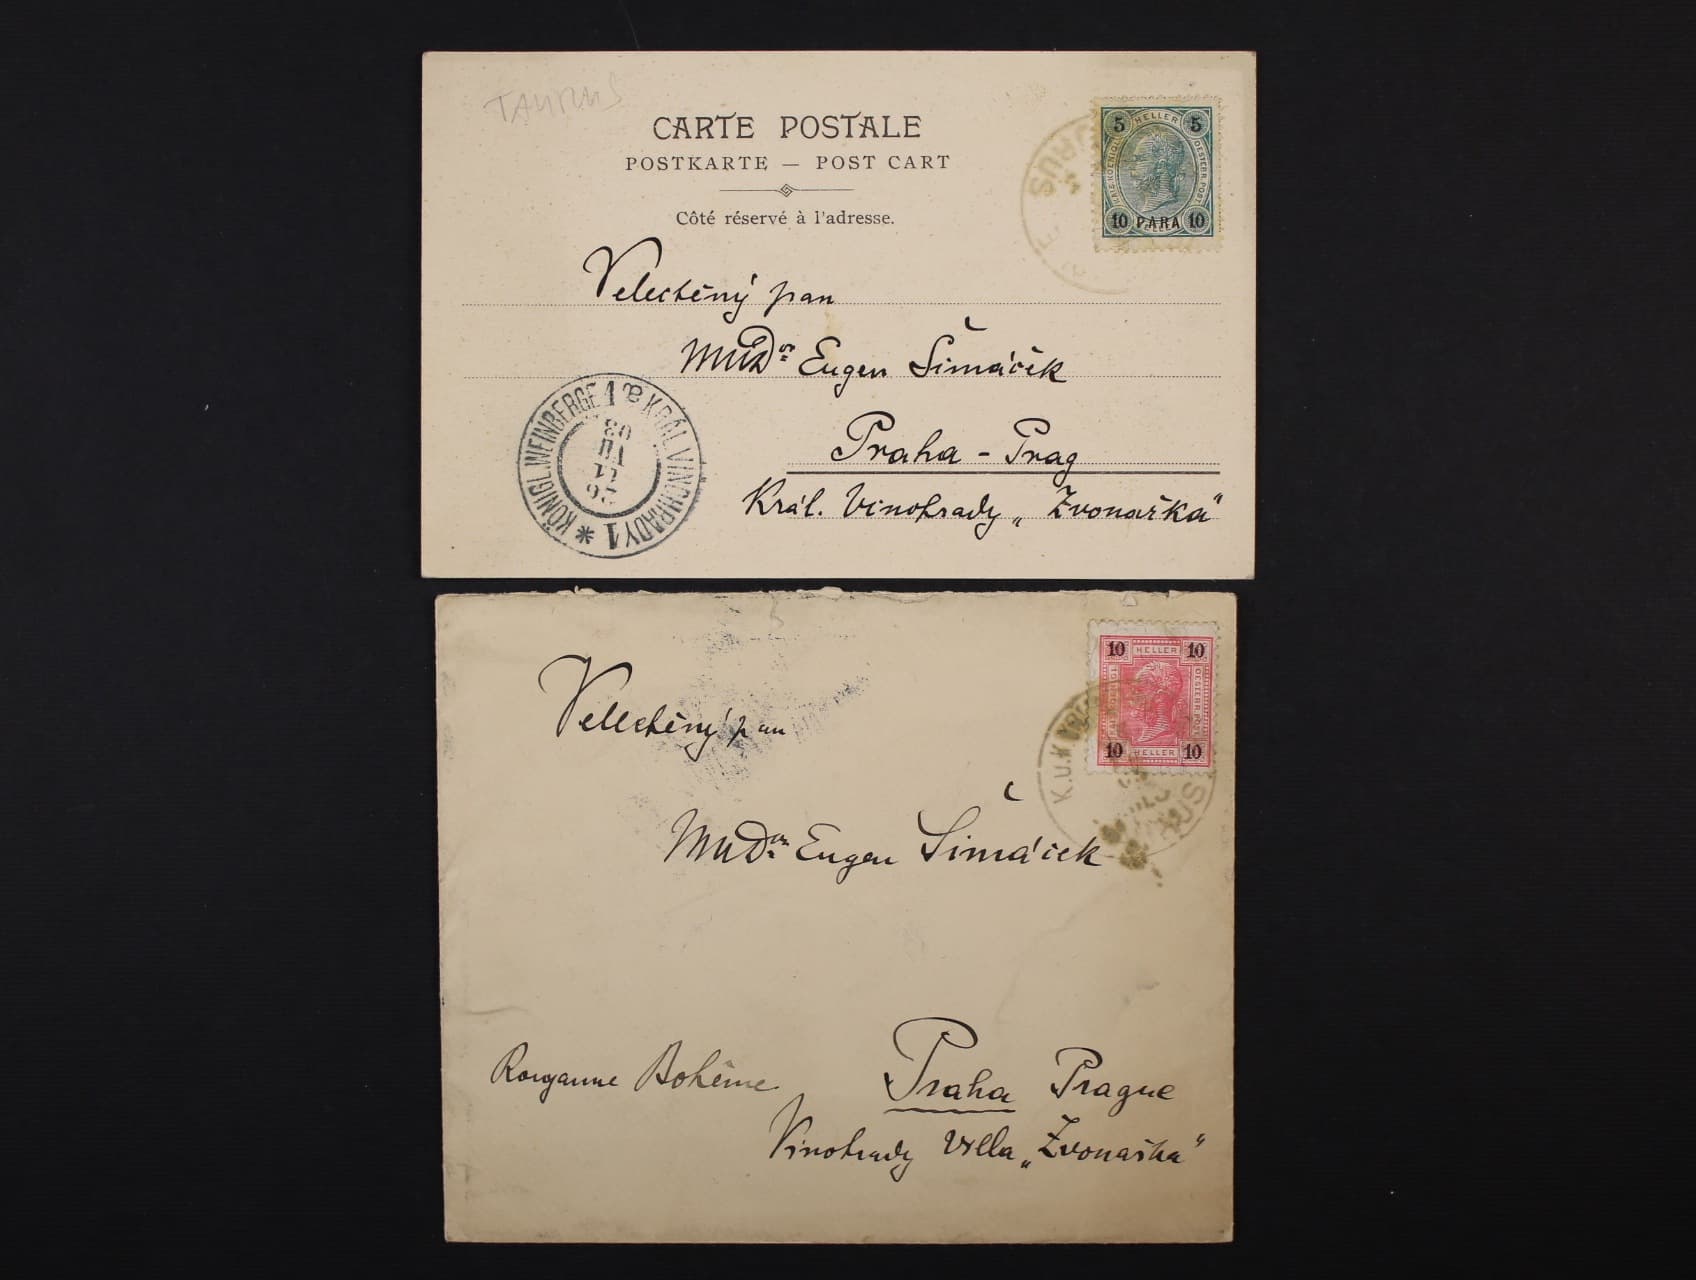 TAURUS
CARTE POSTALE
POSTKARTE — POST CART
Côté réservé à l'adresse.
5 HELLER 5
10 PARA 10
Velectěný pan
MUDr Eugen Šimáček
Praha - Prag
Král. Vinohrady „Zvonařka“
KÖNIGL. WEINBERGE 1 KRÁL. VINOHRADY 1
26
11
VII
03
10 HELLER 10
OESTERR. POST
10 HELLER 10
K.u.K
Velectěný pan
MUDr Eugen Šimáček
Praha Prague
Bohême
Vinohrady Villa „Zvonařka“